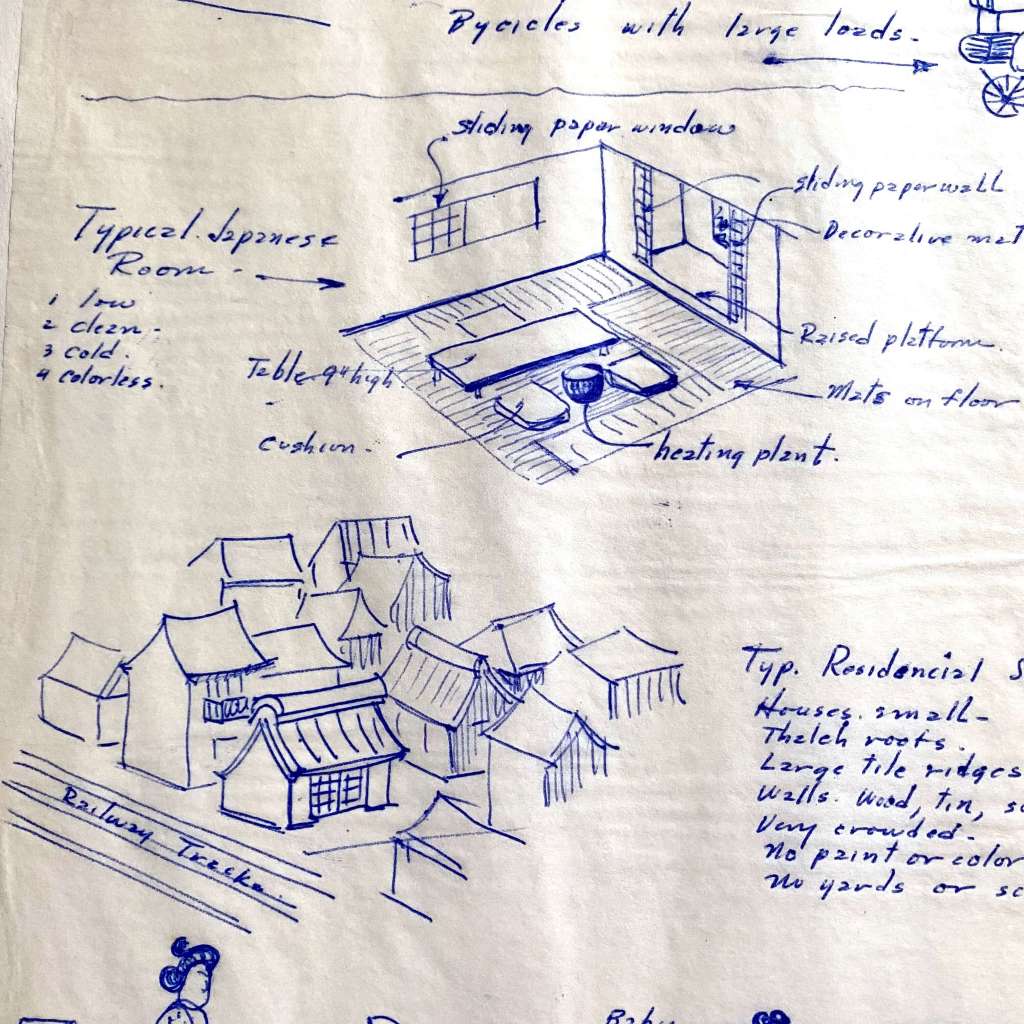 Bycicles with large loads.
sliding paper window
sliding paper wall
Typical Japanese
Room -
Decorative mat
1 low
2 clean -
3 cold.
4 colorless.
Raised platform.
Table 9" high.
Mats on floor
Cushion -
heating plant.
Typ. Residencial S
Houses small -
Thatch roofs.
Large tile ridges
Walls. Wood, tin,
Very crowded -
No paint or color
No yards or
Railway Tracks.
Baby